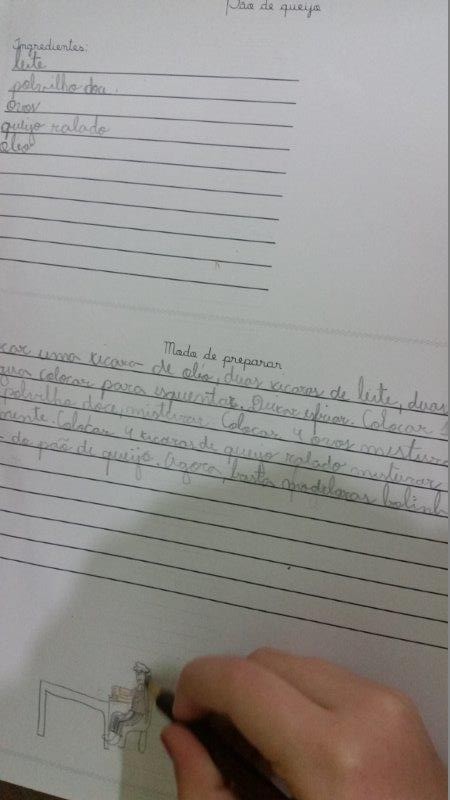 Pão de queijo
Ingredientes:
leite
polvilho doce
ovos
queijo ralado
óleo
Modo de preparar
car uma xicara de oléo, duas xicaras de leite, duas
colocar para esquentar. Deixar esfriar. Colocar
polvilho doce, misturar. Colocar 4 ovos mistura
mente. Colocar 4 xicaras de queijo ralado misturar
do pão de queijo. Agora, basta modelar as bolinh